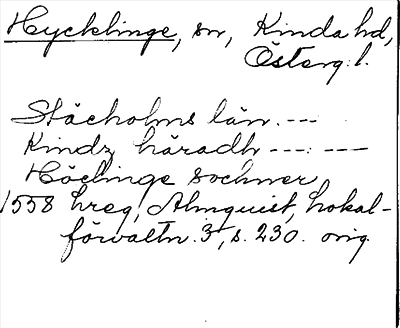 Hycklinge, sn, Kinda hd,
Österg: l.
Stächolms län. ---
Kindz häradh ---:---
Höclinge sochner
1558 hreg, Almquist, Lokal-
förvaltn. 3, s. 230. orig.